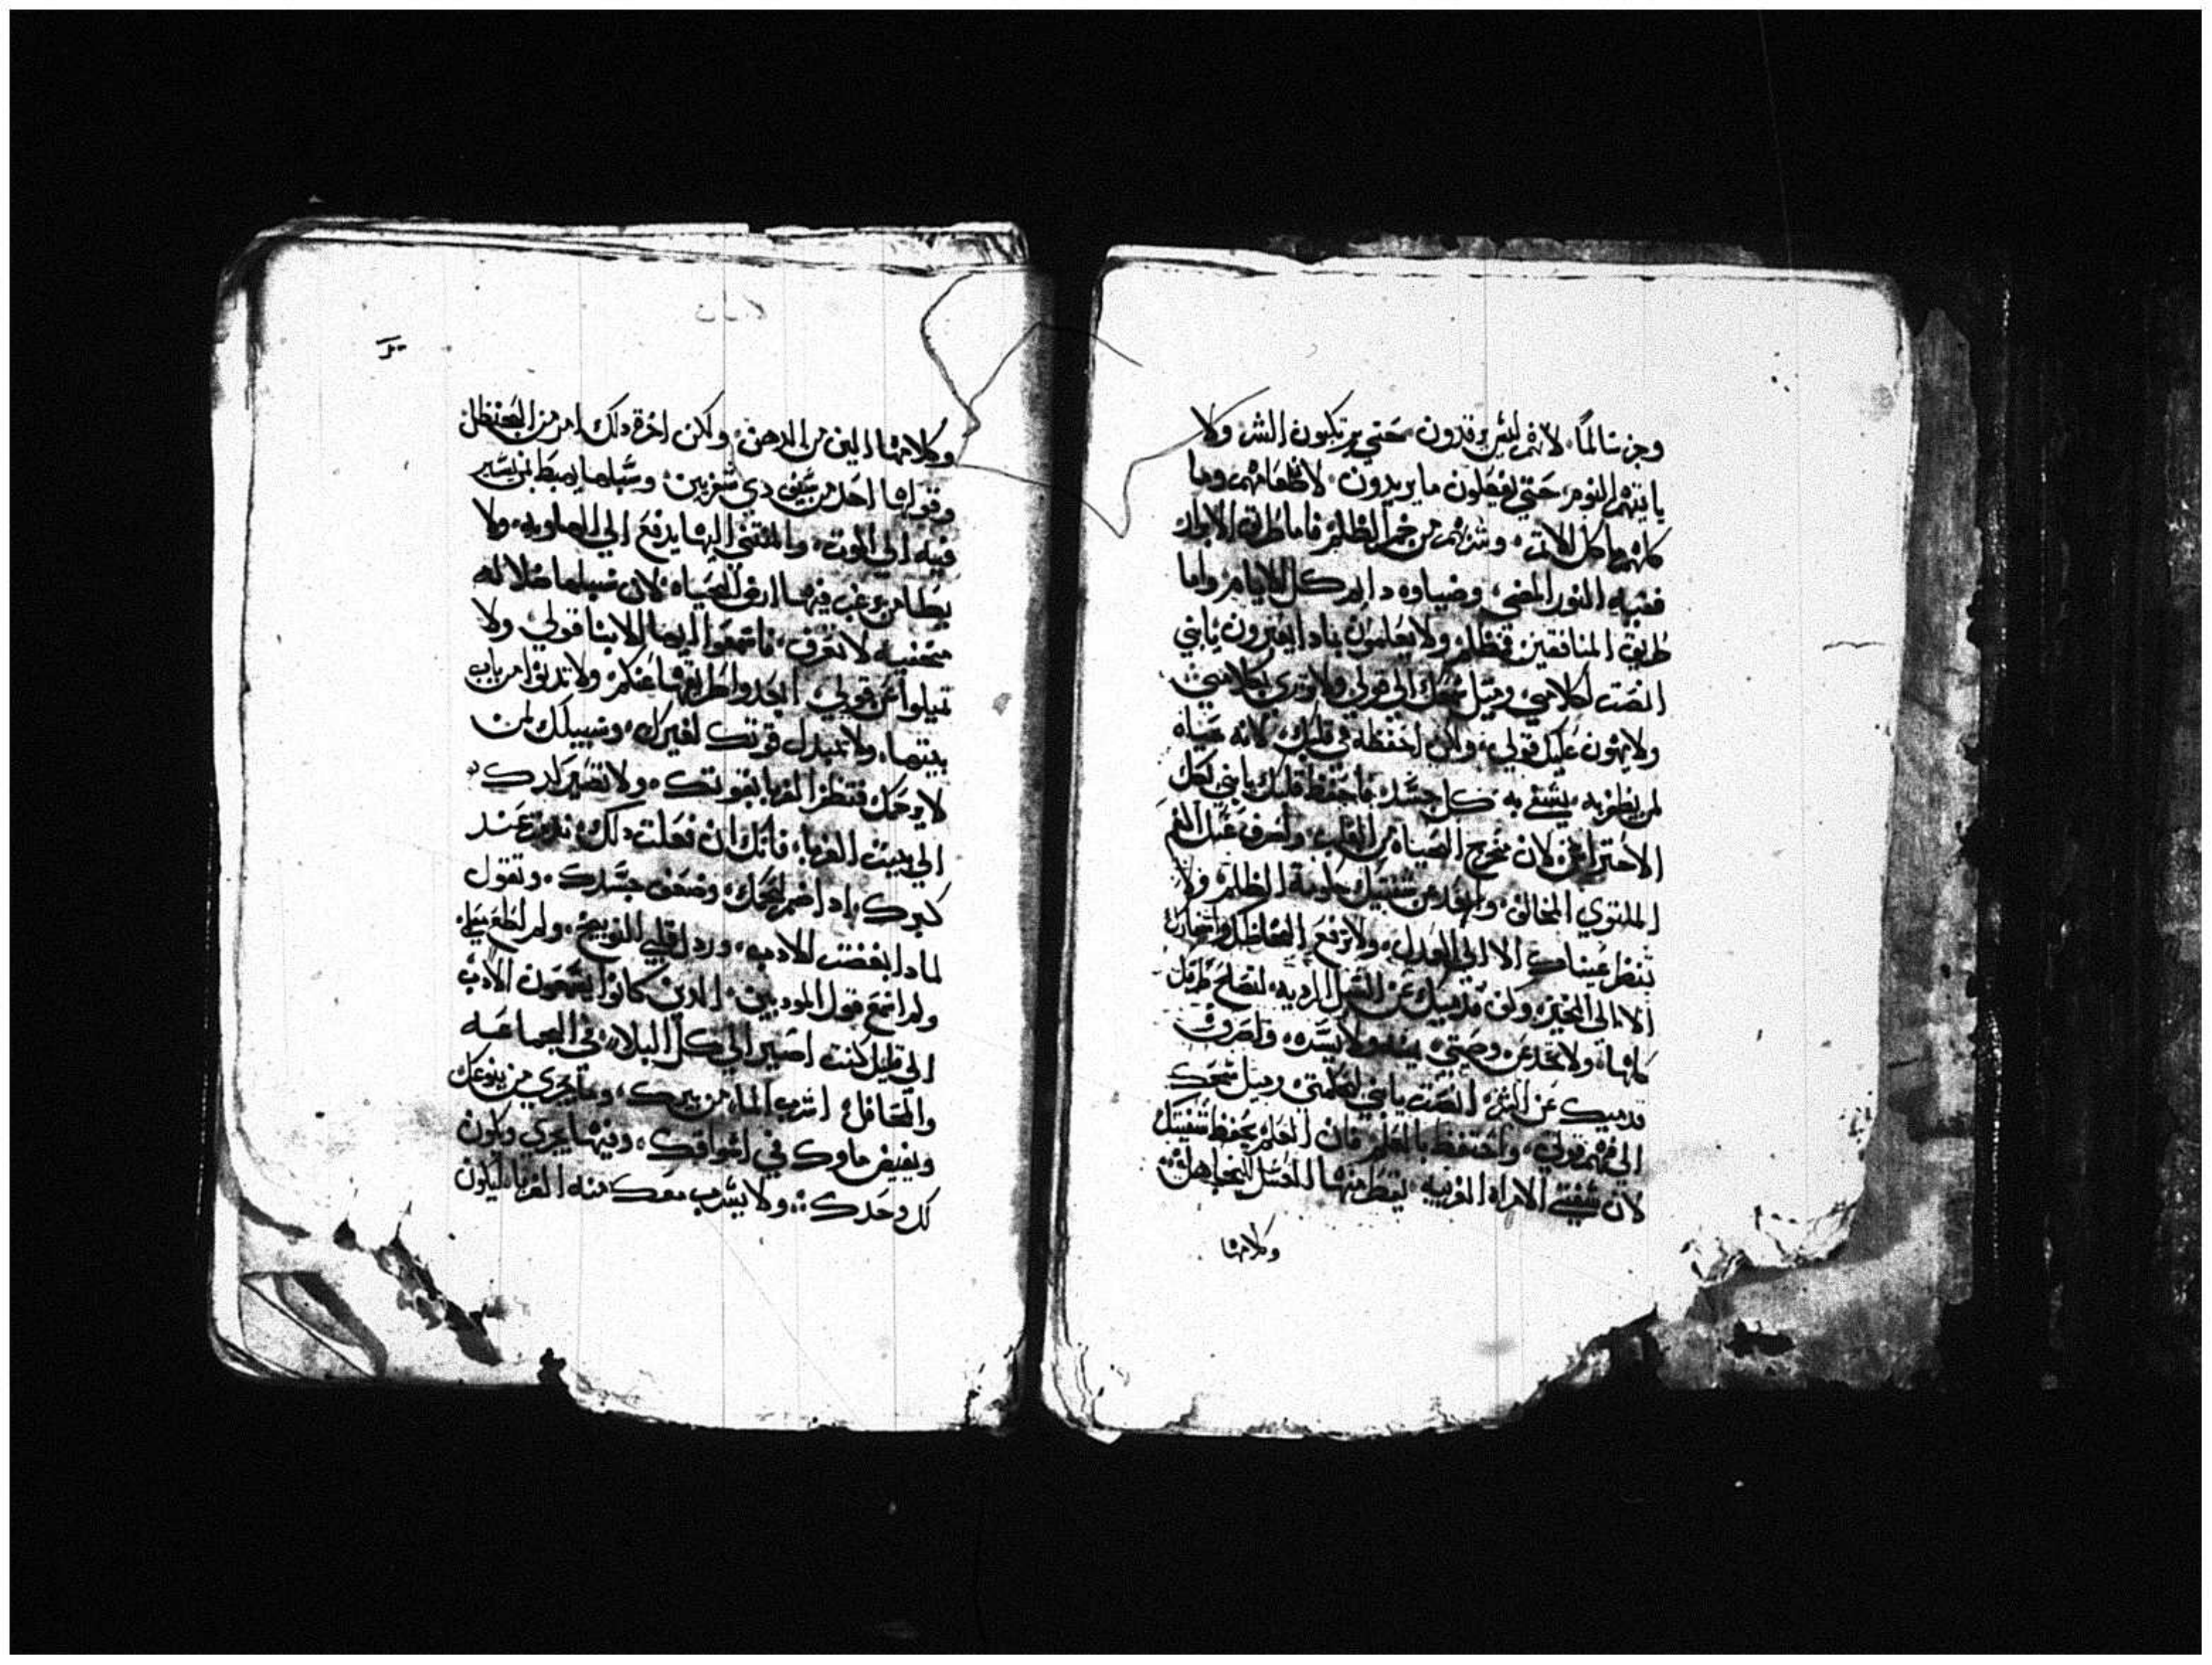 وجز سالمًا لانهم ليس يرقدون حتي يرتكبون الشر ولا
ياتيهم النوم حتي يفعلون ما يريدون لان طعامهم وما
كلهم ماكل الاثم وشربهم من خمر الظلم فاما طرق الابرار
فشبه النور المضي وضياوه دايم كل الايام واما
طريق المنافقين فتظلم ولا يعلمون بماذا يعثرون يابني
انصت لكلامي وميل سمعك الي قولي ولا تزري بكلامي
ولا يهون عليك قولي ولكن احفظه في قلبك لانه حياه
لمن يظفر به يشفي به كل جسده فاحتفظ قلبك يابني بكل
الاحتراس لان مخرج الحياه من القلب واصرف عنك الفم
الملتوي المخالف وابعد عن شفتيك الظلم ولا
تنظر عيناك الا الي العدل ولا ترفع
الا الي الخير وكف قدميك عن السبل الرديه لتصلح طرقك
كلها ولا تحد عن وصيتي يمنه ولا يسره واصرف
قدميك عن الشر انصت يابني لحكمتي وميل سمعك
الي فهم قولي واحتفظ بالعلم فان العلم يحفظ شفتيك
لان شفتي الامراه الغريبه يقطر منها العسل للجاهل
وكلامها
وكلامها الين من الدهن ولكن اخرة ذلك امر من الحنظل
وقولها احد من سيف دي شفرتين وسبلها يهبط بمن يسير
فيه الي الموت والمقتفي اليها يدفع الي الهاويه ولا
يطا من رغب فيها ارض الحياه لان سبلها ضلاله
منحنيه لا تعرف فاسمعوا ايها الابنا قولي ولا
تميلوا عن قولي ابعدوا طريقها عنكم ولا تدنوا من باب
بيتها ولا تبدل قوتك لغيرك وسبيلك لمن
لا يرحمك فتنظر الغربا بقوتك ولا تصير كدك
الي بيت الغربا فانك ان فعلت دلك تندم عند
كبرك ادا اضمر لحمك وضعف جسدك وتقول
لمادا ابغضت الادب ورد قلبي التوبيخ ولم اطع
ولم اسمع قول المودبين الدين كانوا يسمعون الادب
الي قليل كنت اصير الي كل البلا في الجماعه
والمحافل اشرب الما من بيرك وما يجري من ينبوعك
ويفيض ماوك في اسواقك وفيها يجري ويكون
لك وحدك ولا يشرب معك منه الغربا ليكون